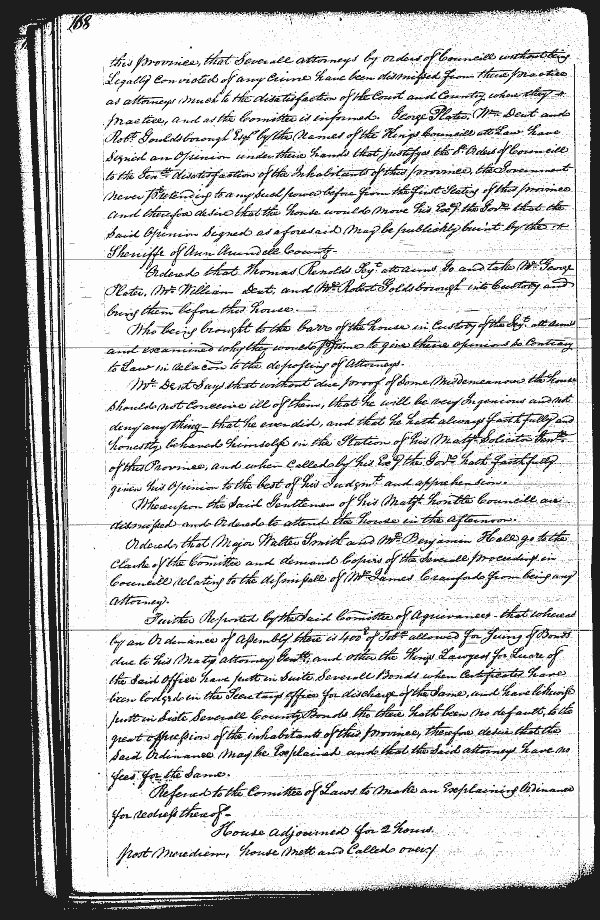 168
this Province, that Severall attorneys by orders of Councill without being
Legally Convicted of any Crime have been dismissed from their practice
as attorneys much to the disatisfaction of the Court and Country where they
practice, and as the Comittee is informed George Plater, Wm Dent and
Robt Gouldsborough Esqr by the Names of the Kings Councill att Law have
Signed an Opinion under their hands that justifyes the sd Orders of Councill
to the Genll disatisfaction of the Inhabitants of this province, the Government
never pretending to any such power before from the first Seating of this province
and therefore desire that the house would move his Excy the Govr that the
Said Opinion Signed as aforesaid May be publickly burnt by the
Sheriffe of Ann Arundell County
Ordered that Thomas Renolds Serjt att arms Go and take Mr George
Plater, Mr William Dent, and Mr Robert Goldsborough into Custody and
bring them before this house.
Who being brought to the barr of the house in Custody of the Serjt att arms
and examined why they would give their opinions so Contrary
to Law in relacon to the deposeing of Attorneys.
Mr Dent Says that without due proof of Some Misdemeanor the house
Should not Conceive ill of them, that he will be very Ingenious and not
deny any thing that he ever did, and that he hath always faithfully and
honestly behaved himself in the Station of his Matys Solicitor Genll
of this Province, and when Called by his Excy the Govr hath faithfully
given his Opinion to the best of his Judgmt and apprehension.
Whereupon the Said Gentlemen of his Matys honble Councill are
dismissed and Ordered to attend the house in the afternoon.
Ordered that Major Walter Smith and Mr Benjamin Hall go to the
Clarke of the Comittee and demand Copies of the Severall proceedings in
Councill relating to the dismissall of Mr James Cranford from being any
Attorney.
Further Reported by the Said Comittee of Agrievances that whereas
by an Ordinance of Assembly there is 400 lb of Tobo allowed for Suing of Bonds
due to his Matys attorney Genll, and other the Kings Lawyers for Lucre of
the Said Office have putt in Suite Severall Bonds when Certificates have
been lodged in the Secretarys Office for discharge of the Same, and have likewise
putt in Suite Severall County Bonds tho there hath been no default, to the
great oppression of the inhabitants of this province, therefore desire that the
Said Ordinance may be Explained and that the Said attorneys have no
fees for the Same.
Referred to the Comittee of Laws to make an Explaining Ordinance
for redress thereof
House adjourned for 2 hours
post Meridiem, house mett and Called over